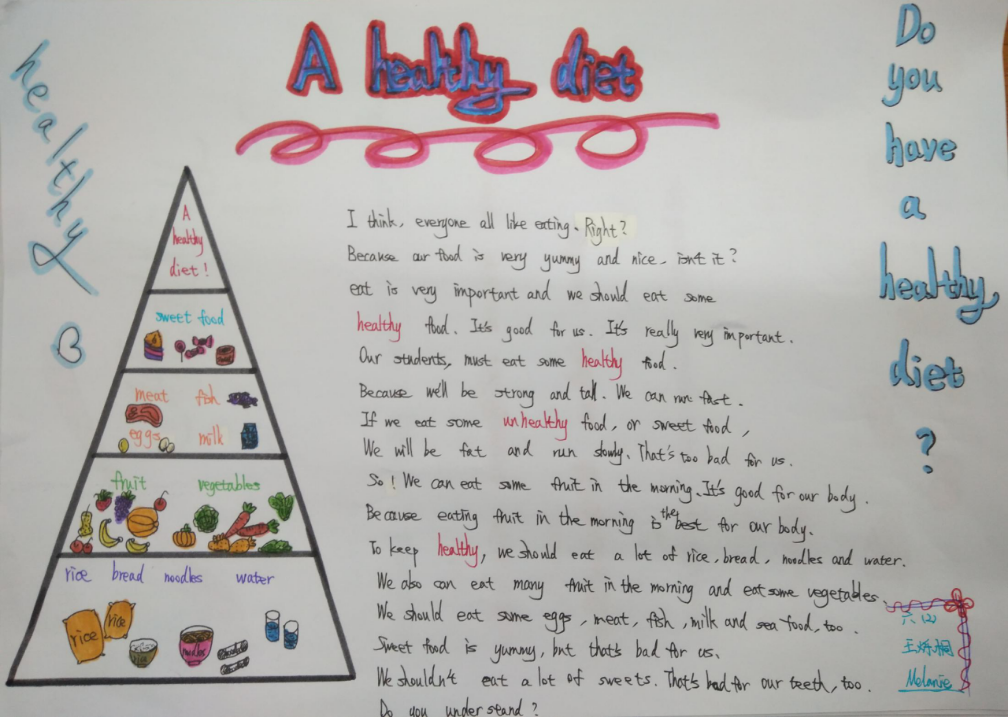 A healthy diet
healthy
Do
you
have
a
healthy
diet
?
A
healthy
diet!
sweet food
meat fish
eggs milk
fruit vegetables
rice bread noodles water
rice rice
rice noodles
I think, everyone all like eating. Right?
Because our food is very yummy and nice, isn't it?
eat is very important and we should eat some
healthy food. It's good for us. It's really very important.
Our students, must eat some healthy food.
Because we'll be strong and tall. We can run fast.
If we eat some unhealthy food, or sweet food,
We will be fat and run slowly. That's too bad for us.
So! We can eat some fruit in the morning. It's good for our body.
Because eating fruit in the morning is the best for our body.
To keep healthy, we should eat a lot of rice, bread, noodles and water.
We also can eat many fruit in the morning and eat some vegetables.
We should eat some eggs, meat, fish, milk and sea food, too.
Sweet food is yummy, but that's bad for us.
We shouldn't eat a lot of sweets. That's bad for our teeth, too.
Do you understand?
六(2)
Melanie